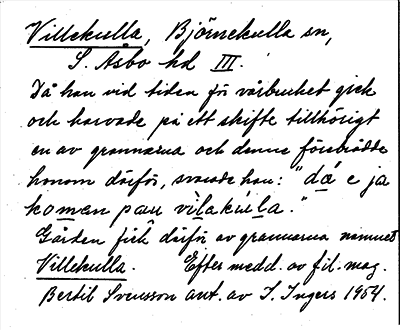 Villekulla, Björnekulla sn,
S. Åsbo hd III.
Då han vid tiden för vårbruket gick
och harvade på ett skifte tillhörigt
en av grannarna och denne förebrådde
honom därför, svarade han: "dá e ja
koman pau vìlakúla."
Gården fick därför av grannarna namnet
Villekulla. Efter medd. av fil. mag.
Bertil Svensson ant. av I. Ingers 1954.